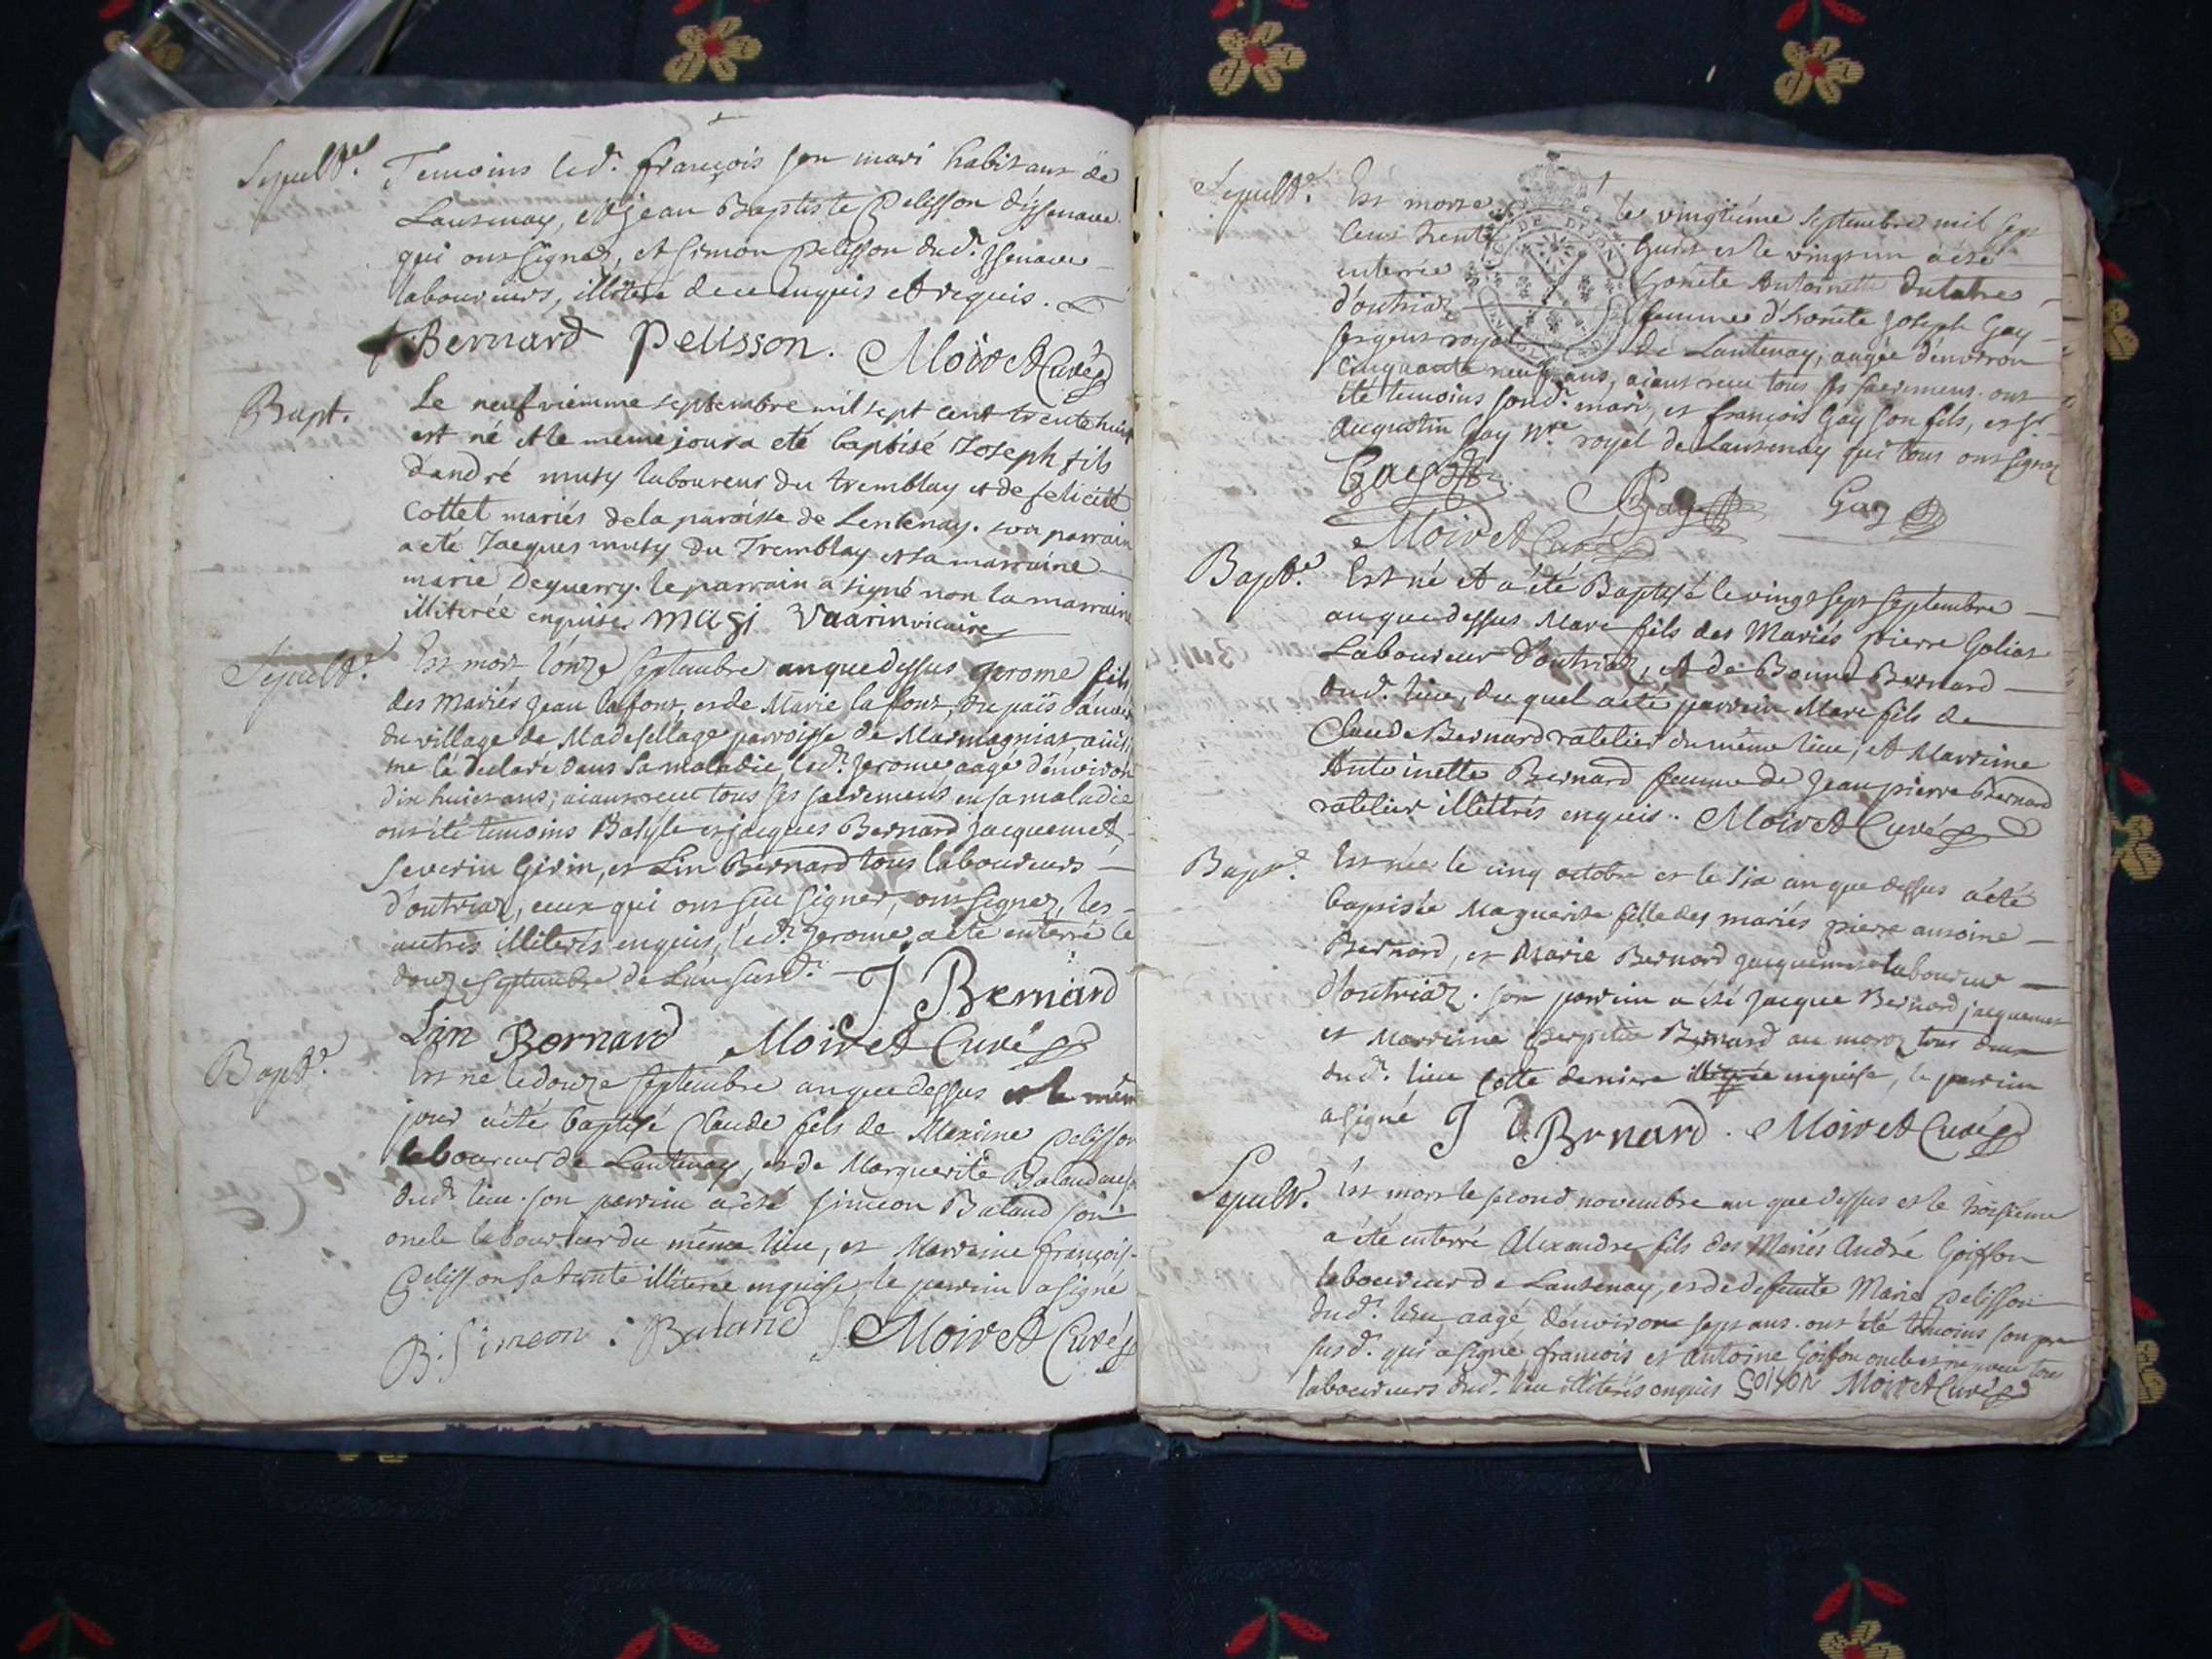 Sepult.e Temoins led. françois son mari habitans de
Lantenay, et jean Baptiste Pelisson d'issenave
qui ont signez, et simon pelisson dud. Issenave
laboureurs, illiteré de ce enquis et requis.
Bernard Pelisson. Moiret Curé
Bapt. Le neufviemme septembre mil sept cent trente huit
est né et le meme jour a eté baptisé Joseph fils
d'andré muty laboureur du tremblay et de felicité
Cottet mariés de la paroisse de Lentenay. son parrain
a eté Jacques muty du Tremblay et sa marraine
marie Deguerry. le parrain a signé non la marraine
illiterée enquise. Vaarin vicaire
Sepult.e Est mort l'onze septembre an que dessus gerome fils
des mariés Jean lafont, et de Marie lafont, du païs
du village de Madesellage parroisse de Marmagniat, ainsi
me l'a declaré dans sa maladie, led. Jerome aagé d'environ
dix huict ans; aiant receu tous ses sacremens en sa maladie
ont été temoins Basyle et jacques Bernard jacquemet,
Severin Girin, et Lin Bernard tous laboureurs
d'outriaz, ceux qui ont sceu signer, ont signez, les
autres illiterés enquis, led. Jerome a eté enterré le
douze septembre de l'an susd. J Bernard
Lin Bernard Moiret Curé
Bapt.e Est né le douze septembre an que dessus et le mem
jour a été baptisé Claude fils de Maxime pelisson
laboureur de Lantenay, et de Marguerite
dud. lieu. son perrin a eté simeon Baland son
oncle laboureur du même lieu, et Marreine françois
Pelisson sa tante illiterée enquise, le perrin a signé
B. Simeon : Baland Moiret Curé
Sepult.e Est morte le vingtiéme septembre mil sept
cent trente huict et le vingt un a été
enterrée honete Antoinette
d'outriaz femme d'honete Joseph Gay
sergent royal de Lantenay, aagée d'environ
cinquante neuf ans, aiant receu tous ses sacremens. ont
été temoins sond. mari, et françois Gay son fils, et sr.
Augustin Gay nre royal de Lantenay qui tous ont signez
Gay Gay
Moiret Curé
Bapt.e Est né et a été Baptisé le vingt sept septembre
an que dessus Marc fils des Mariés pierre Goliat
Laboureur d'outriaz, et de Bonne Bernard
dud. lieu, du quel a été perrin Marc fils de
Claude Bernard ratelier du même lieu, et Marreine
Antoinette Bernard femme de Jean pierre Bernard
ratelier illettrés enquis. Moiret Curé
Bapt.e Est née le cinq octobre et le six an que dessus a été
baptisée Marguerite fille des mariés pierre antoine
Bernard, et Marie Bernard jacquemet laboureur
d'outriaz. son perrin a été Jacque Bernard jacquemet
et Marreine Bernard au tous deux
dud. lieu cette derniere illiterée enquise, le perrin
a signé J Bernard. Moiret Curé
Sepult. Est mort le second novembre an que dessus et le troisieme
a été enterré Alexandre fils des Mariés André Goiffon
laboureur de Lantenay, et de defunte Marie pelisson
dud. lieu aagé d'environ sept ans. ont été temoins son pere
susd. qui a signé, francois et antoine Goiffon oncle et tous
laboureurs dud. lieu illiterés enquis Goifon Moiret Curé